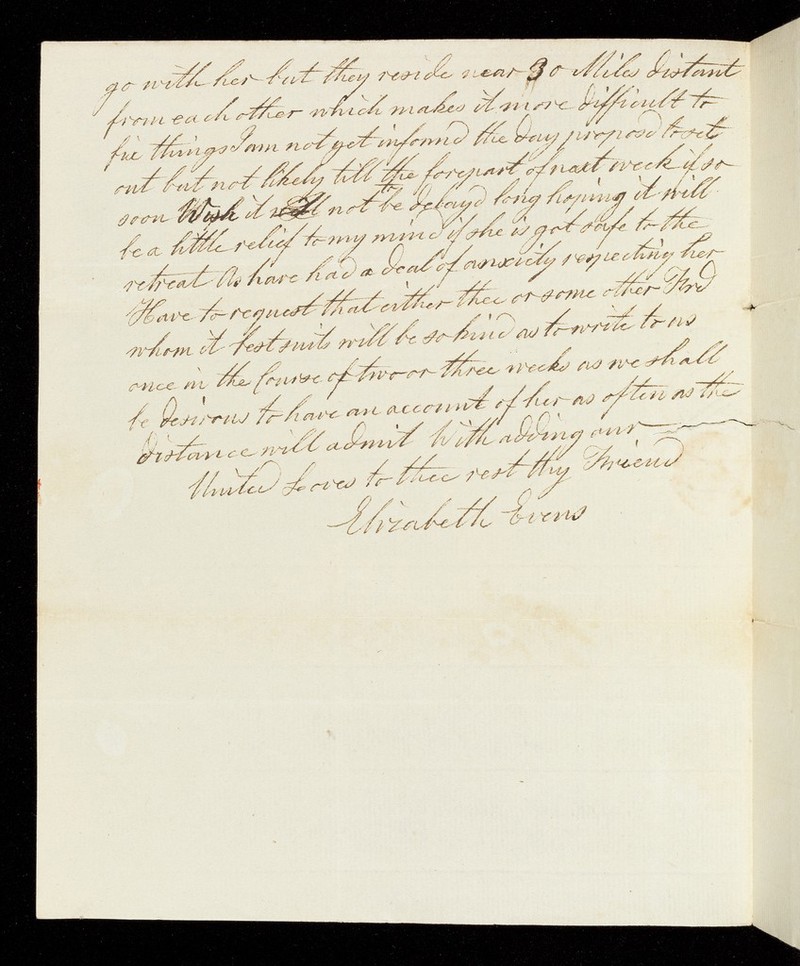 go with her but they reside near 30 Miles distant
from each other which makes it more difficult to
fix things I am not yet inform'd the day propos'd to set
out but not likely till the forepart of next week if so
soon Wish it not be delay'd long hoping it will
be a little relief to my mind if she is got safe to the
retreat As have had a deal of anxiety respecting her
Have to request that either thee or some other Frd
whom it best suits will be so kind as to write to us
once in the Course of two or three weeks as we shall
be desirous to have an account of her as often as the
distance will admit With adding our
United Loves to thee rest thy Friend
Elizabeth Evens